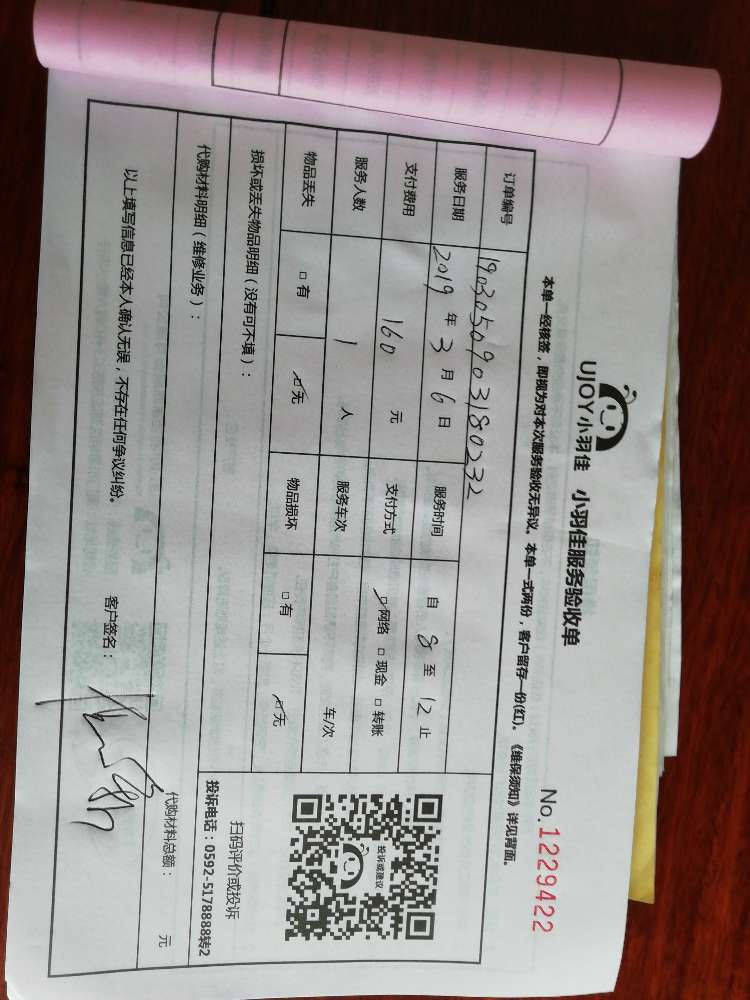 UJOY小羽佳 小羽佳服务验收单
No.1229422
本单一经核签，即视为对本次服务验收无异议。本单一式两份，客户留存一份(红)。《维保须知》详见背面。
订单编号 190305090318023​2
服务日期 2019 年 3 月 6 日 服务时间 自 8 至 12 止
支付费用 160 元 支付方式 ☑网络 □现金 □转账
服务人数 1 人 服务车次 车/次
物品丢失 □有 ☑无 物品损坏 □有 ☑无
损坏或丢失物品明细（没有可不填）：
投诉或建议
扫码评价或投诉
投诉电话：0592-5178888转2
代购材料明细（维修业务）：
代购材料总额： 元
以上填写信息已经本人确认无误，不存在任何争议纠纷。 客户签名：